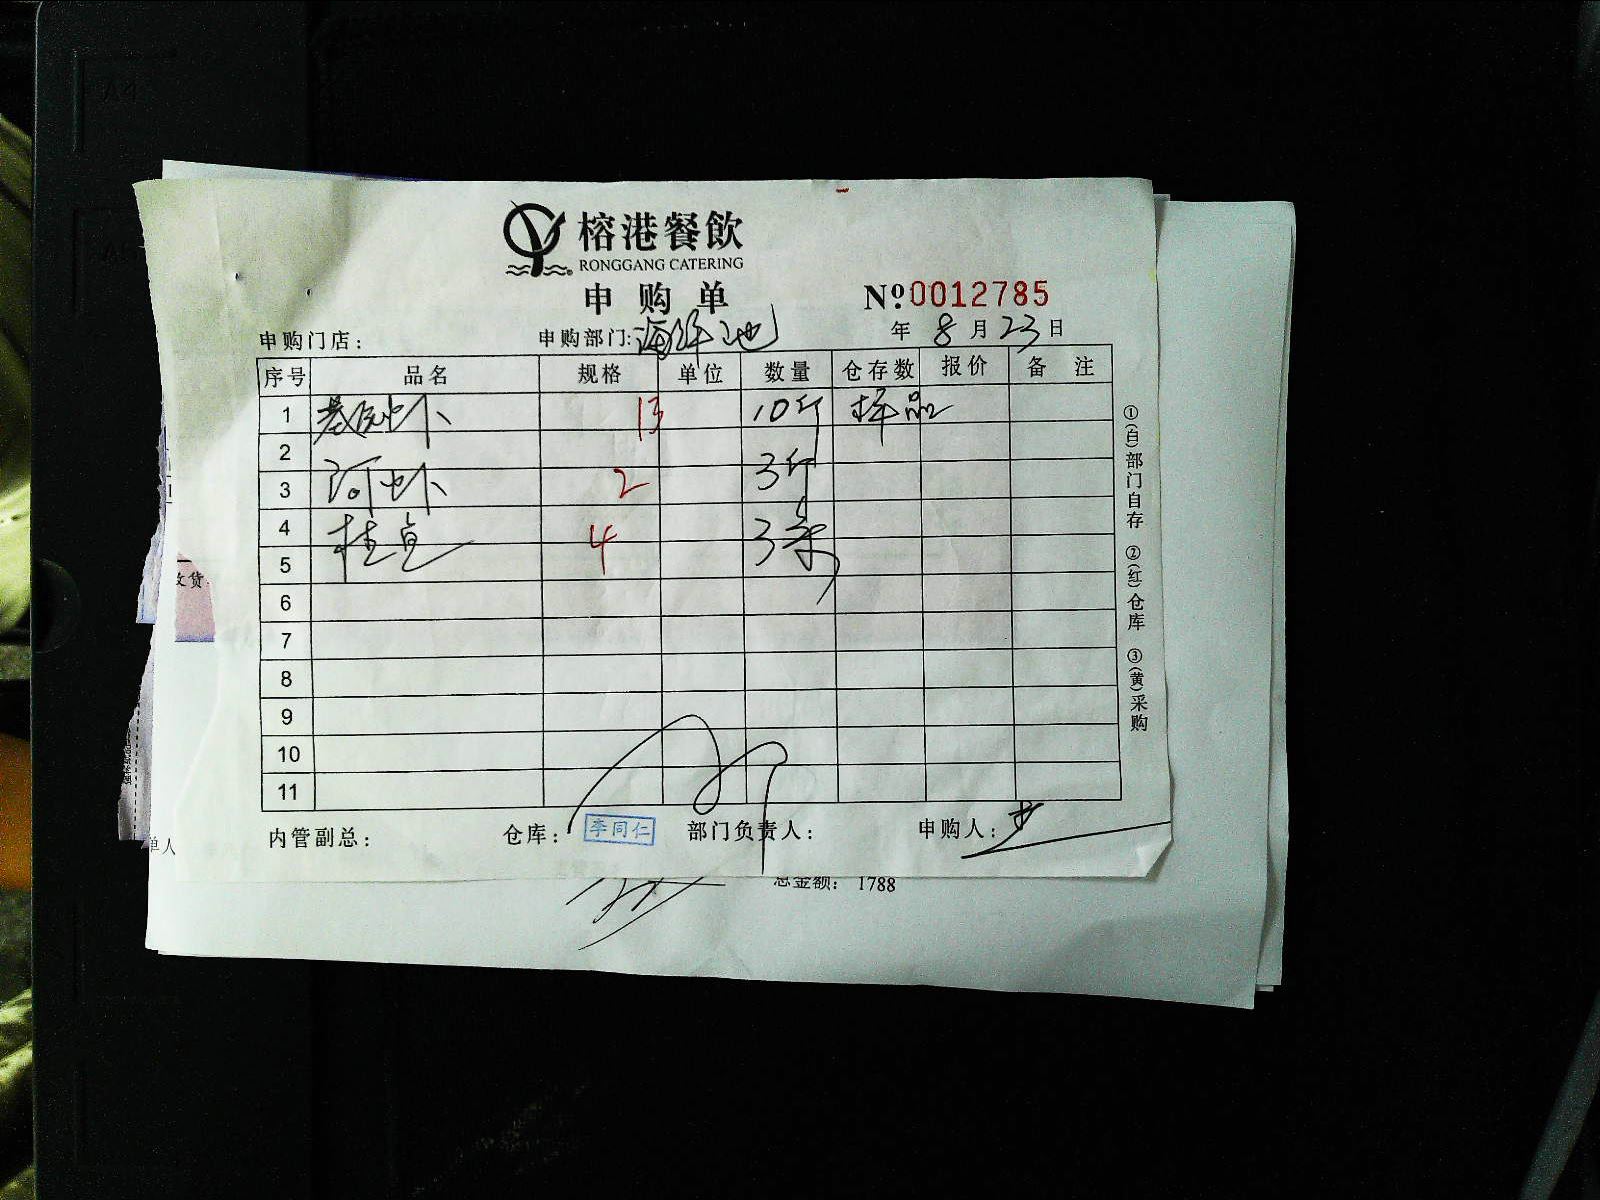 榕港餐飲
RONGGANG CATERING
申购单
№0012785
申购门店: 申购部门:海鲜池 年 8 月 23 日
序号 品名 规格 单位 数量 仓存数 报价 备注
1 基围虾 13 10斤 样品
2
3 河虾 2 3斤
4 桂鱼 4 3条
5
6
7
8
9
10
11
内管副总: 仓库: 李同仁 部门负责人: 申购人:
①(白)部门自存 ②(红)仓库 ③(黄)采购
收货
单人
总金额: 1788